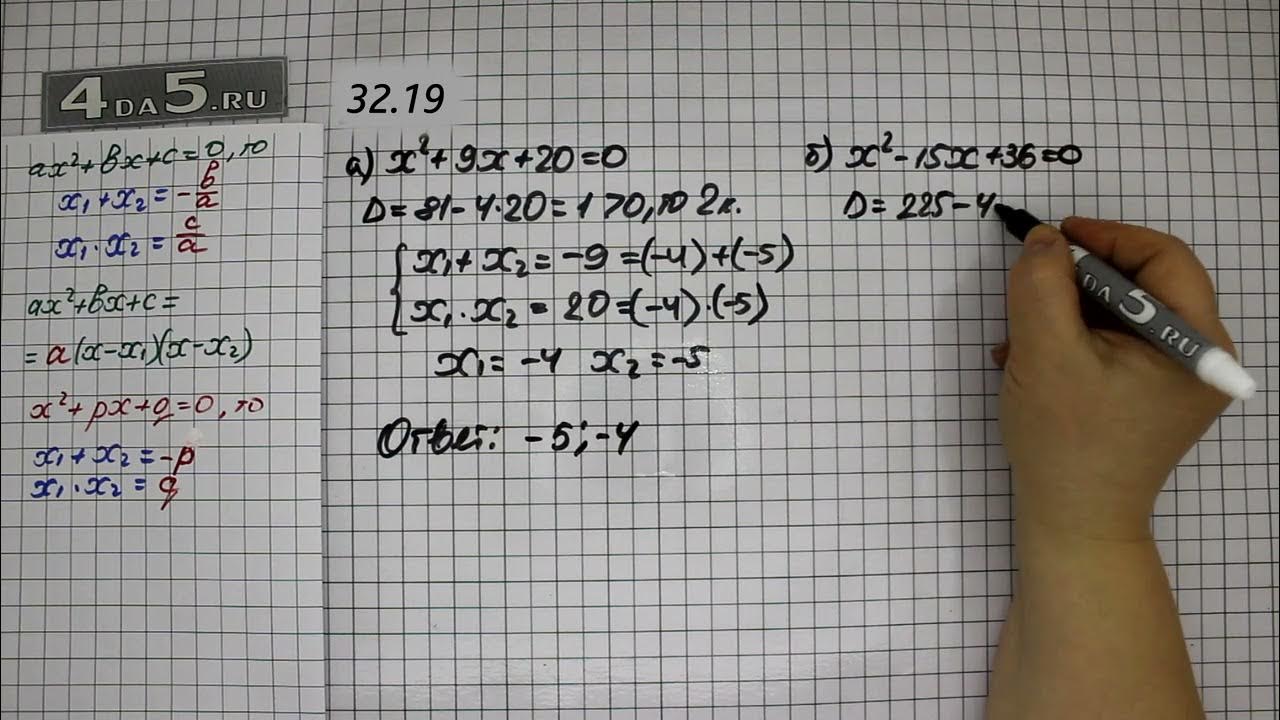 4DA5.RU
32.19
ax²+bx+c=0, то
x₁+x₂=-b/a
x₁·x₂=c/a
ax²+bx+c=
=a(x-x₁)(x-x₂)
x²+px+q=0, то
x₁+x₂=-p
x₁·x₂=q
а) x²+9x+20=0
D=81-4·20=1>0, то 2к.
x₁+x₂=-9=(-4)+(-5)
x₁·x₂=20=(-4)·(-5)
x₁=-4 x₂=-5
Ответ: -5;-4
б) x²-15x+36=0
D=225-4
DA5.RU